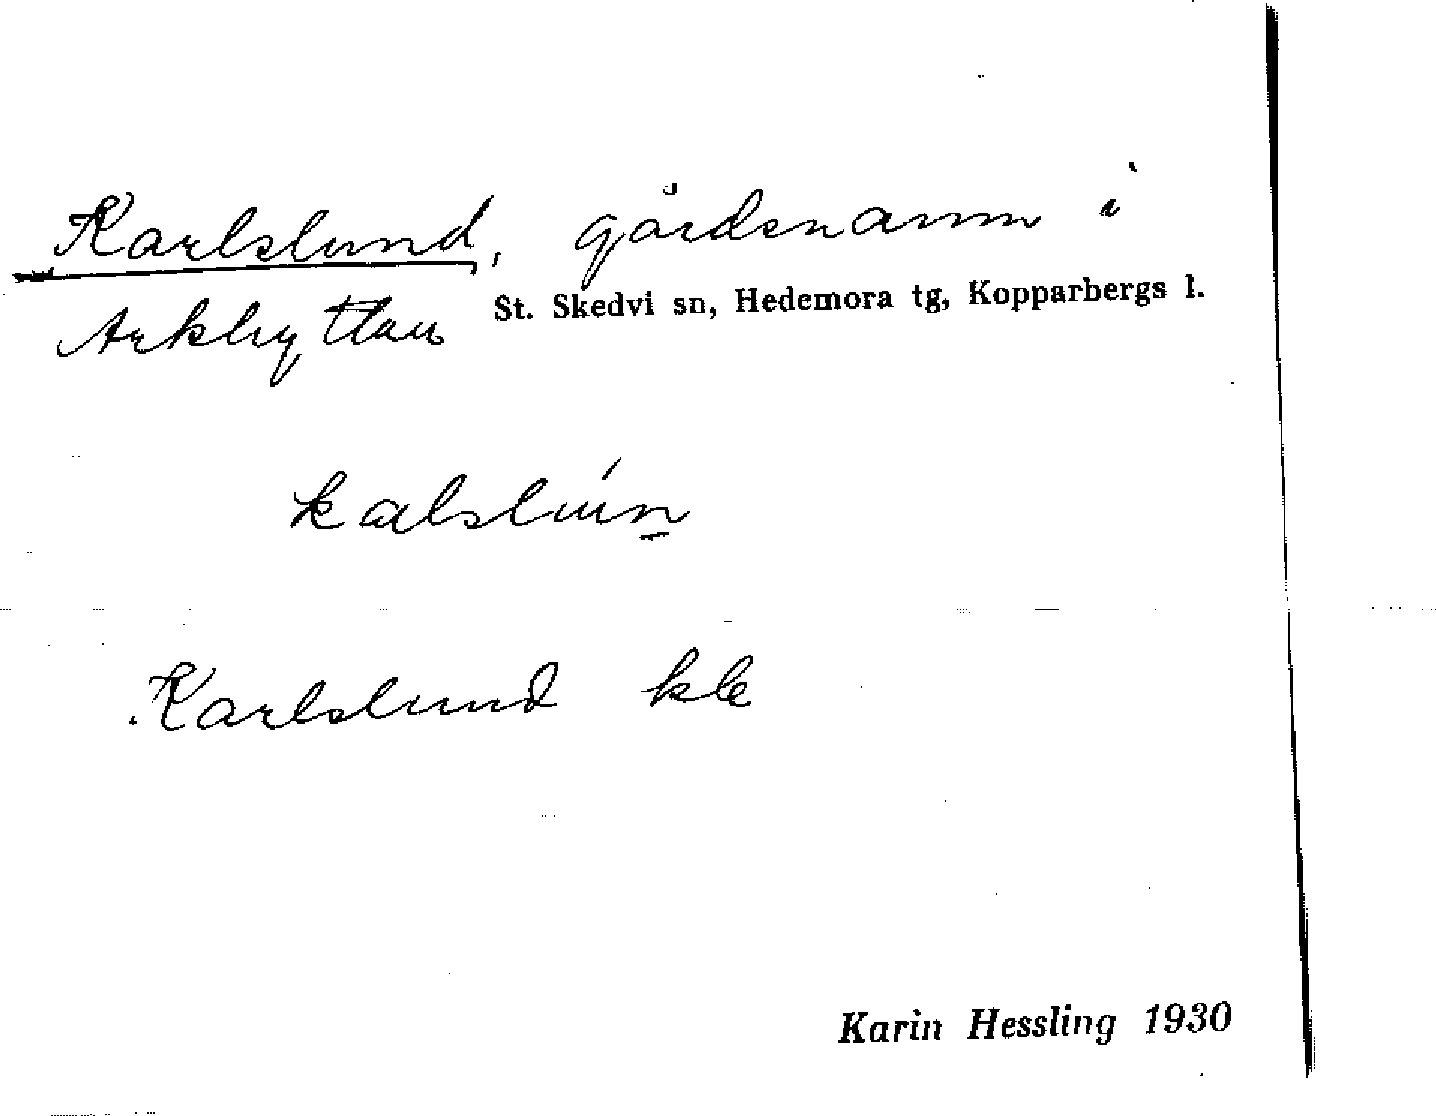 Karlslund, gårdsnamn i
Arkhyttan St. Skedvi sn, Hedemora tg, Kopparbergs l.
Karlslund
Karin Hessling 1930